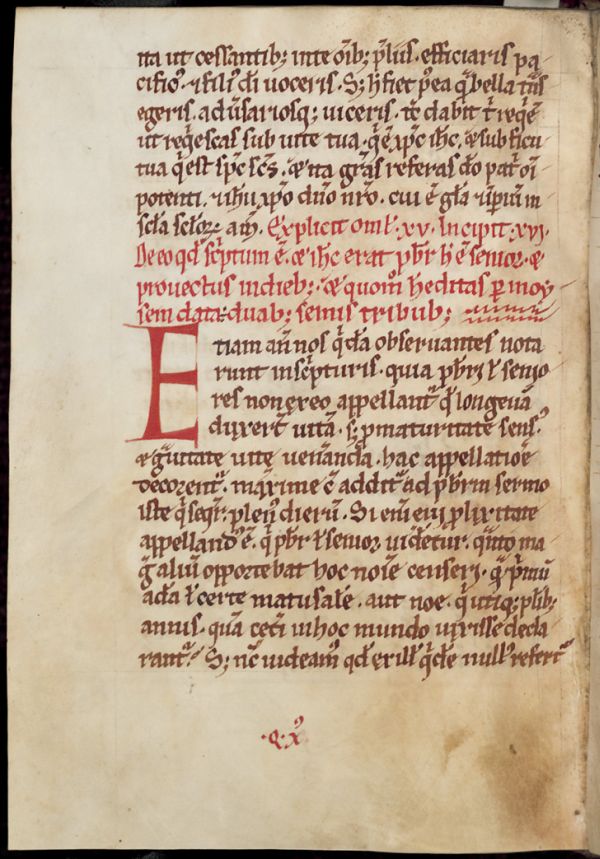 na ut cessantib; inte oīb; p̄lus. efficiaris pa
cifio᾽. ⁊ filī dī voceris. S; h̄ fiet p᾽ea q̄ bella dn̄s
egeris. adūsariosq; viceris. tc̄ dabit t̄ reqē
ut reqescas sub vite tua. q̄ ē xp̄c ih̄c. æ sub ficu
tua q̄ est sp̄c sc̄s. æ ita grās referas dō patī oī
potenti. ⁊ ihū xp̄o dn̄o nr̄o. cui ē gl̄a ⁊ īpiū in
scl̄a scl̄oꝝ. am̄. Explicit oml̄. xv. Incipit. xvj.
De eo qd̄ sc̄ptum ē. æ ih̄c erat pb̄r h̄ ē senior. æ
provectus in dieb;. æ quom̄ h̄editas p̄ moy
sem data: duab; semis tribub;
Etiam an̄ nos q̄da observantes nota
runt in sc̄pturis. quia pb̄ri ł senio
res non ex eo appellant᾽ q̄ longevā
duxer̄t vitā. s; p̄ maturitate sens᾽.
æ gᵃvitate vite venānda. hac appellatioē
decorent᾽. maxime c̄ addit᾽ ad pb̄rm sermo
iste q̄ seqr̄: plen᾽ dierū. Si enī evi plixitate
appelland᾽ ē. q̄ pb̄r ł senior videtur. quto ma
g᾽ aliū opportebat hoc noīe censeri. q᾽ p̄mū
ada ł certe matusalē. aut noe. q̄ utiq; plib;
annis. quā cet̄i in hoc mundo vixisse decla
rant᾽. S; nc̄ videam᾽ qd̄ ex ill᾽ q̄de null᾽ refert᾽
.Q. x᾽